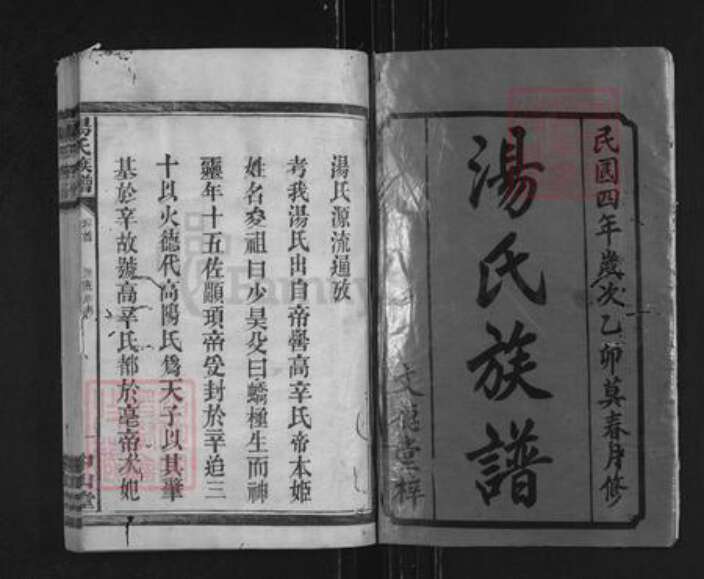 民國四年歲次乙卯莫春月修
湯氏族譜
文德堂梓
湯氏源流通攷
考我湯氏出自帝嚳高辛氏帝本姬
姓名夋祖曰少昊父曰蟜極生而神
靈年十五佐顓頊帝受封於辛迨三
十以火德代高陽氏爲天子以其肇
基於辛故號高辛氏都於亳帝元妃
湯氏族譜
中山堂